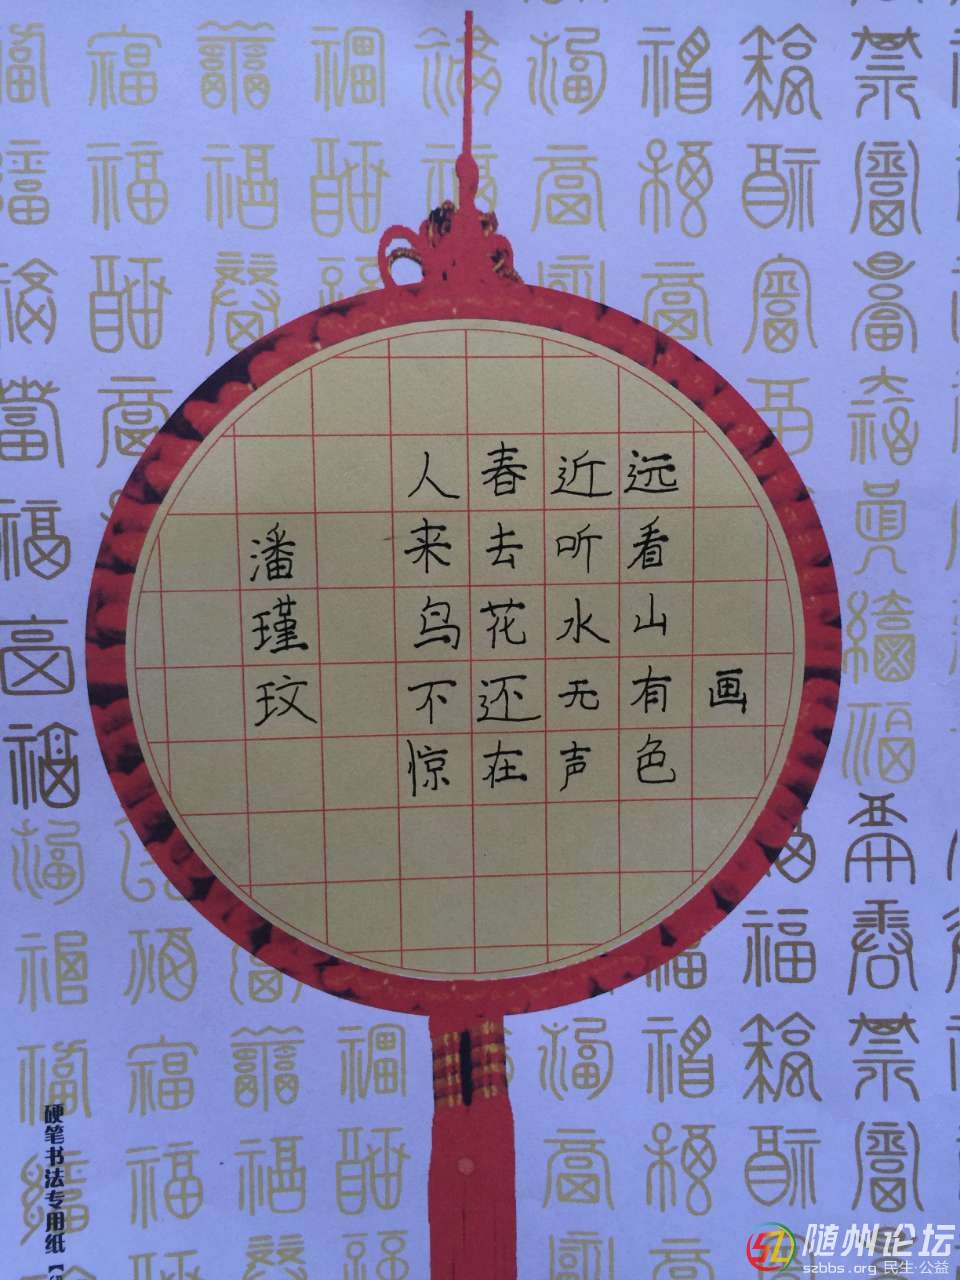 画
远看山有色
近听水无声
春去花还在
人来鸟不惊
潘瑾玟
硬笔书法专用纸
随州论坛
szbbs.org 民生·公益